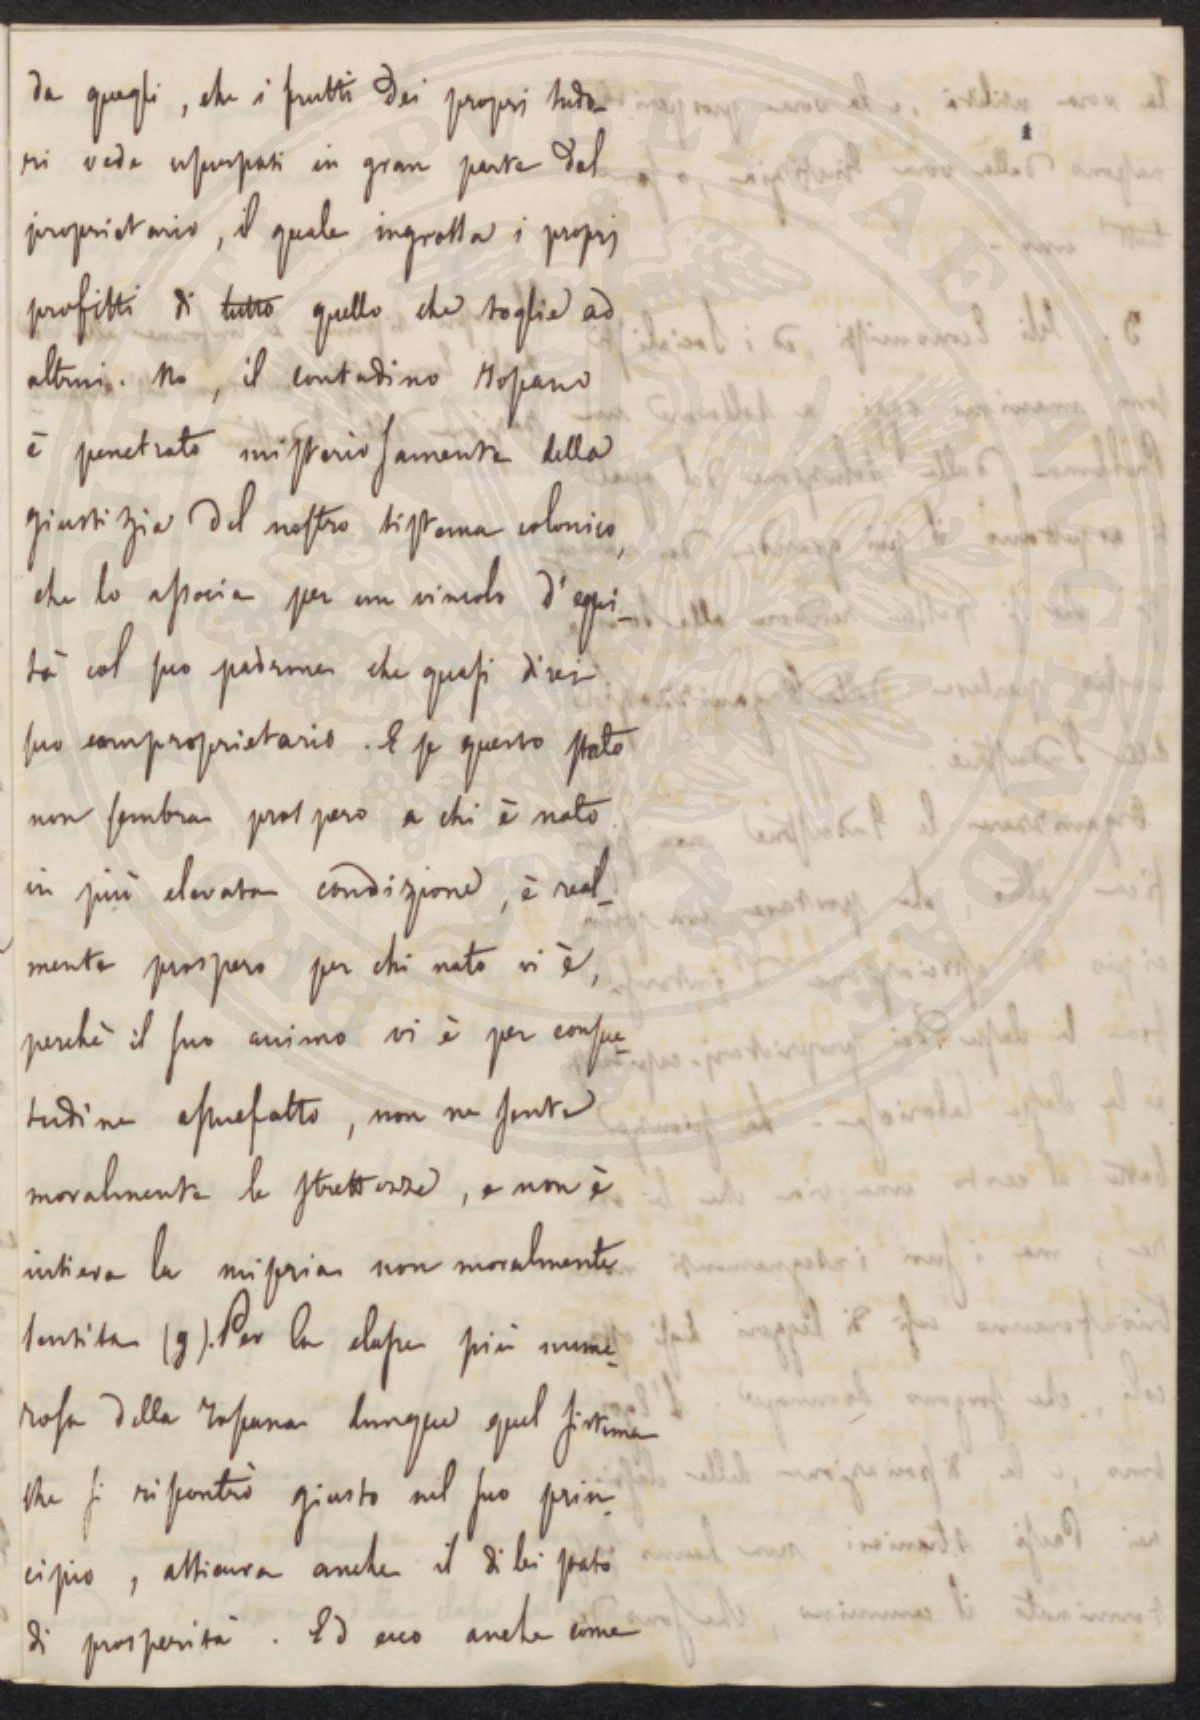 da quegli, che i frutti dei propri sudo-
ri vede usurpati in gran parte dal
proprietario, il quale ingrossa i propri
profitti di tutto quello che toglie ad
altrui. No, il contadino Toscano
è penetrato misteriosamente della
giustizia del nostro sistema colonico,
che lo associa per un vincolo d'equi-
tà col suo padrone che quasi direi
suo comproprietario. E se questo stato
non sembra prospero a chi è nato
in più elevata condizione, è real-
mente prospero per chi nato vi è,
perchè il suo animo vi è per consue-
tudine assuefatto, non ne sente
moralmente le strettezze, e non è
intiera la miseria non moralmente
sentita (g). Per la classe più nume-
rosa della Toscana dunque quel sistema
che si riscontrò giusto nel suo prin-
cipio, assicura anche il di lei stato
di prosperità. Ed ecco anche come